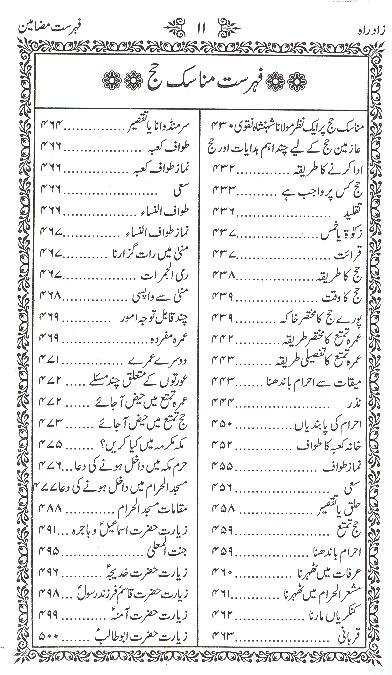 زاد راہ
۱۱
فہرست مضامین
فہرست مناسک حج
مناسک حج پر ایک نظر مولانا شہنشاہ نقوی ۴۳۰
عازمین حج کے لیے چند اہم ہدایات اور حج
ادا کرنے کا طریقہ ۴۳۲
حج کس پر واجب ہے ۴۳۳
تقلید ۴۳۶
زکوٰۃ یا خمس ۴۳۷
قرائت ۴۳۷
حج کا طریقہ ۴۳۸
حج کا وقت ۴۳۹
پورے حج کا مختصر خاکہ ۴۳۹
عمرہ تمتع کا مختصر طریقہ ۴۴۲
عمرہ تمتع کا تفصیلی طریقہ ۴۴۳
میقات سے احرام باندھنا ۴۴۳
نذر ۴۴۴
احرام کی پابندیاں ۴۵۰
خانہ کعبہ کا طواف ۴۵۲
نماز طواف ۴۵۵
سعی ۴۵۶
حلق یا تقصیر ۴۵۸
حج تمتع ۴۵۹
احرام باندھنا ۴۵۹
عرفات میں ٹھہرنا ۴۶۰
مشعر الحرام میں ٹھہرنا ۴۶۱
کنکریاں مارنا ۴۶۲
قربانی ۴۶۳
سر منڈوانا یا تقصیر ۴۶۴
طواف کعبہ ۴۶۶
نماز طواف کعبہ ۴۶۶
سعی ۴۶۶
طواف النساء ۴۶۶
نماز طواف النساء ۴۶۷
منیٰ میں رات گزارنا ۴۶۷
رمی الجمرات ۴۶۷
منیٰ سے واپسی ۴۶۸
چند قابل توجہ امور ۴۶۹
عمرہ مفردہ ۴۶۹
دوسرے عمرے ۴۷۱
عورتوں کے متعلق چند مسئلے ۴۷۲
عمرہ تمتع میں حیض آ جائے ۴۷۲
حج تمتع میں حیض آ جائے ۴۷۳
مکہ مکرمہ میں کیا کریں؟ ۴۷۵
حرم مکہ میں داخل ہونے کی دعا ۴۷۶
مسجد الحرام میں داخل ہونے کی دعا ۴۷۷
مقامات مسجد الحرام ۴۸۸
زیارت حضرت اسماعیلؑ و ہاجرہ ۴۹۱
جنت المعلیٰ ۴۹۵
زیارت حضرت خدیجہؑ ۴۹۶
زیارت حضرت قاسمؑ فرزند رسولؐ ۴۹۸
زیارت حضرت آمنہؑ ۴۹۹
زیارت حضرت ابوطالبؑ ۵۰۰